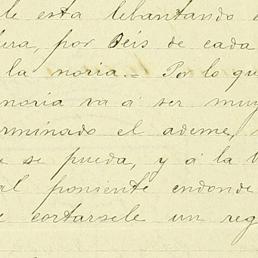 le esta lebantando
era, por Seis de cada
la noria.— Por lo que
noria va á ser muy
erminado el ademe,
se pueda, y á la
al poniente endonde
cortarsele un reg